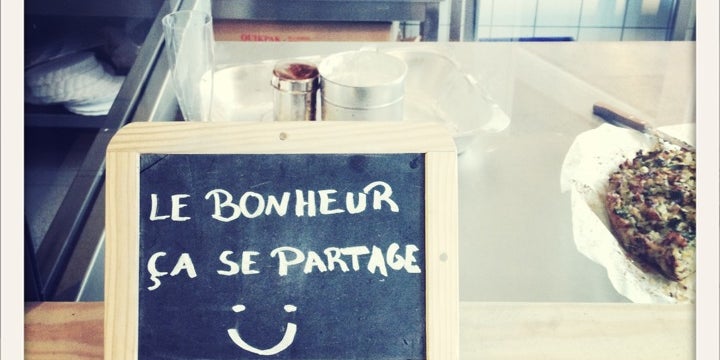 QUIKPAK
LE BONHEUR
ÇA SE PARTAGE